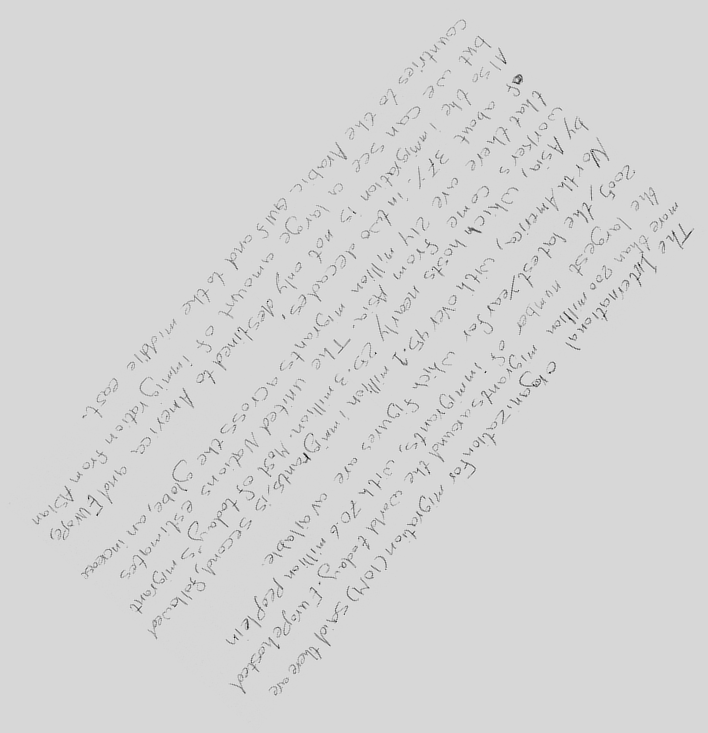 The International organization for migration (IOM) said there are
more than 200 million migrants around the world today. Europe hosted
the largest number of immigrants, with 70.6 million people in
2005, the latest year for which figures are available.
North America, with over 45.1 million immigrants, is second, followed
by Asia, which hosts nearly 25.3 million. Most of today's migrant
workers come from Asia. The united Nations estimates
that there are 214 million migrants across the globe, an increase
of about 37% in two decades.
Also the immigration is not only destined to America and Europe,
but we can see a large amount of immigration from Asian
countries to the Arabic gulf and to the middle east.